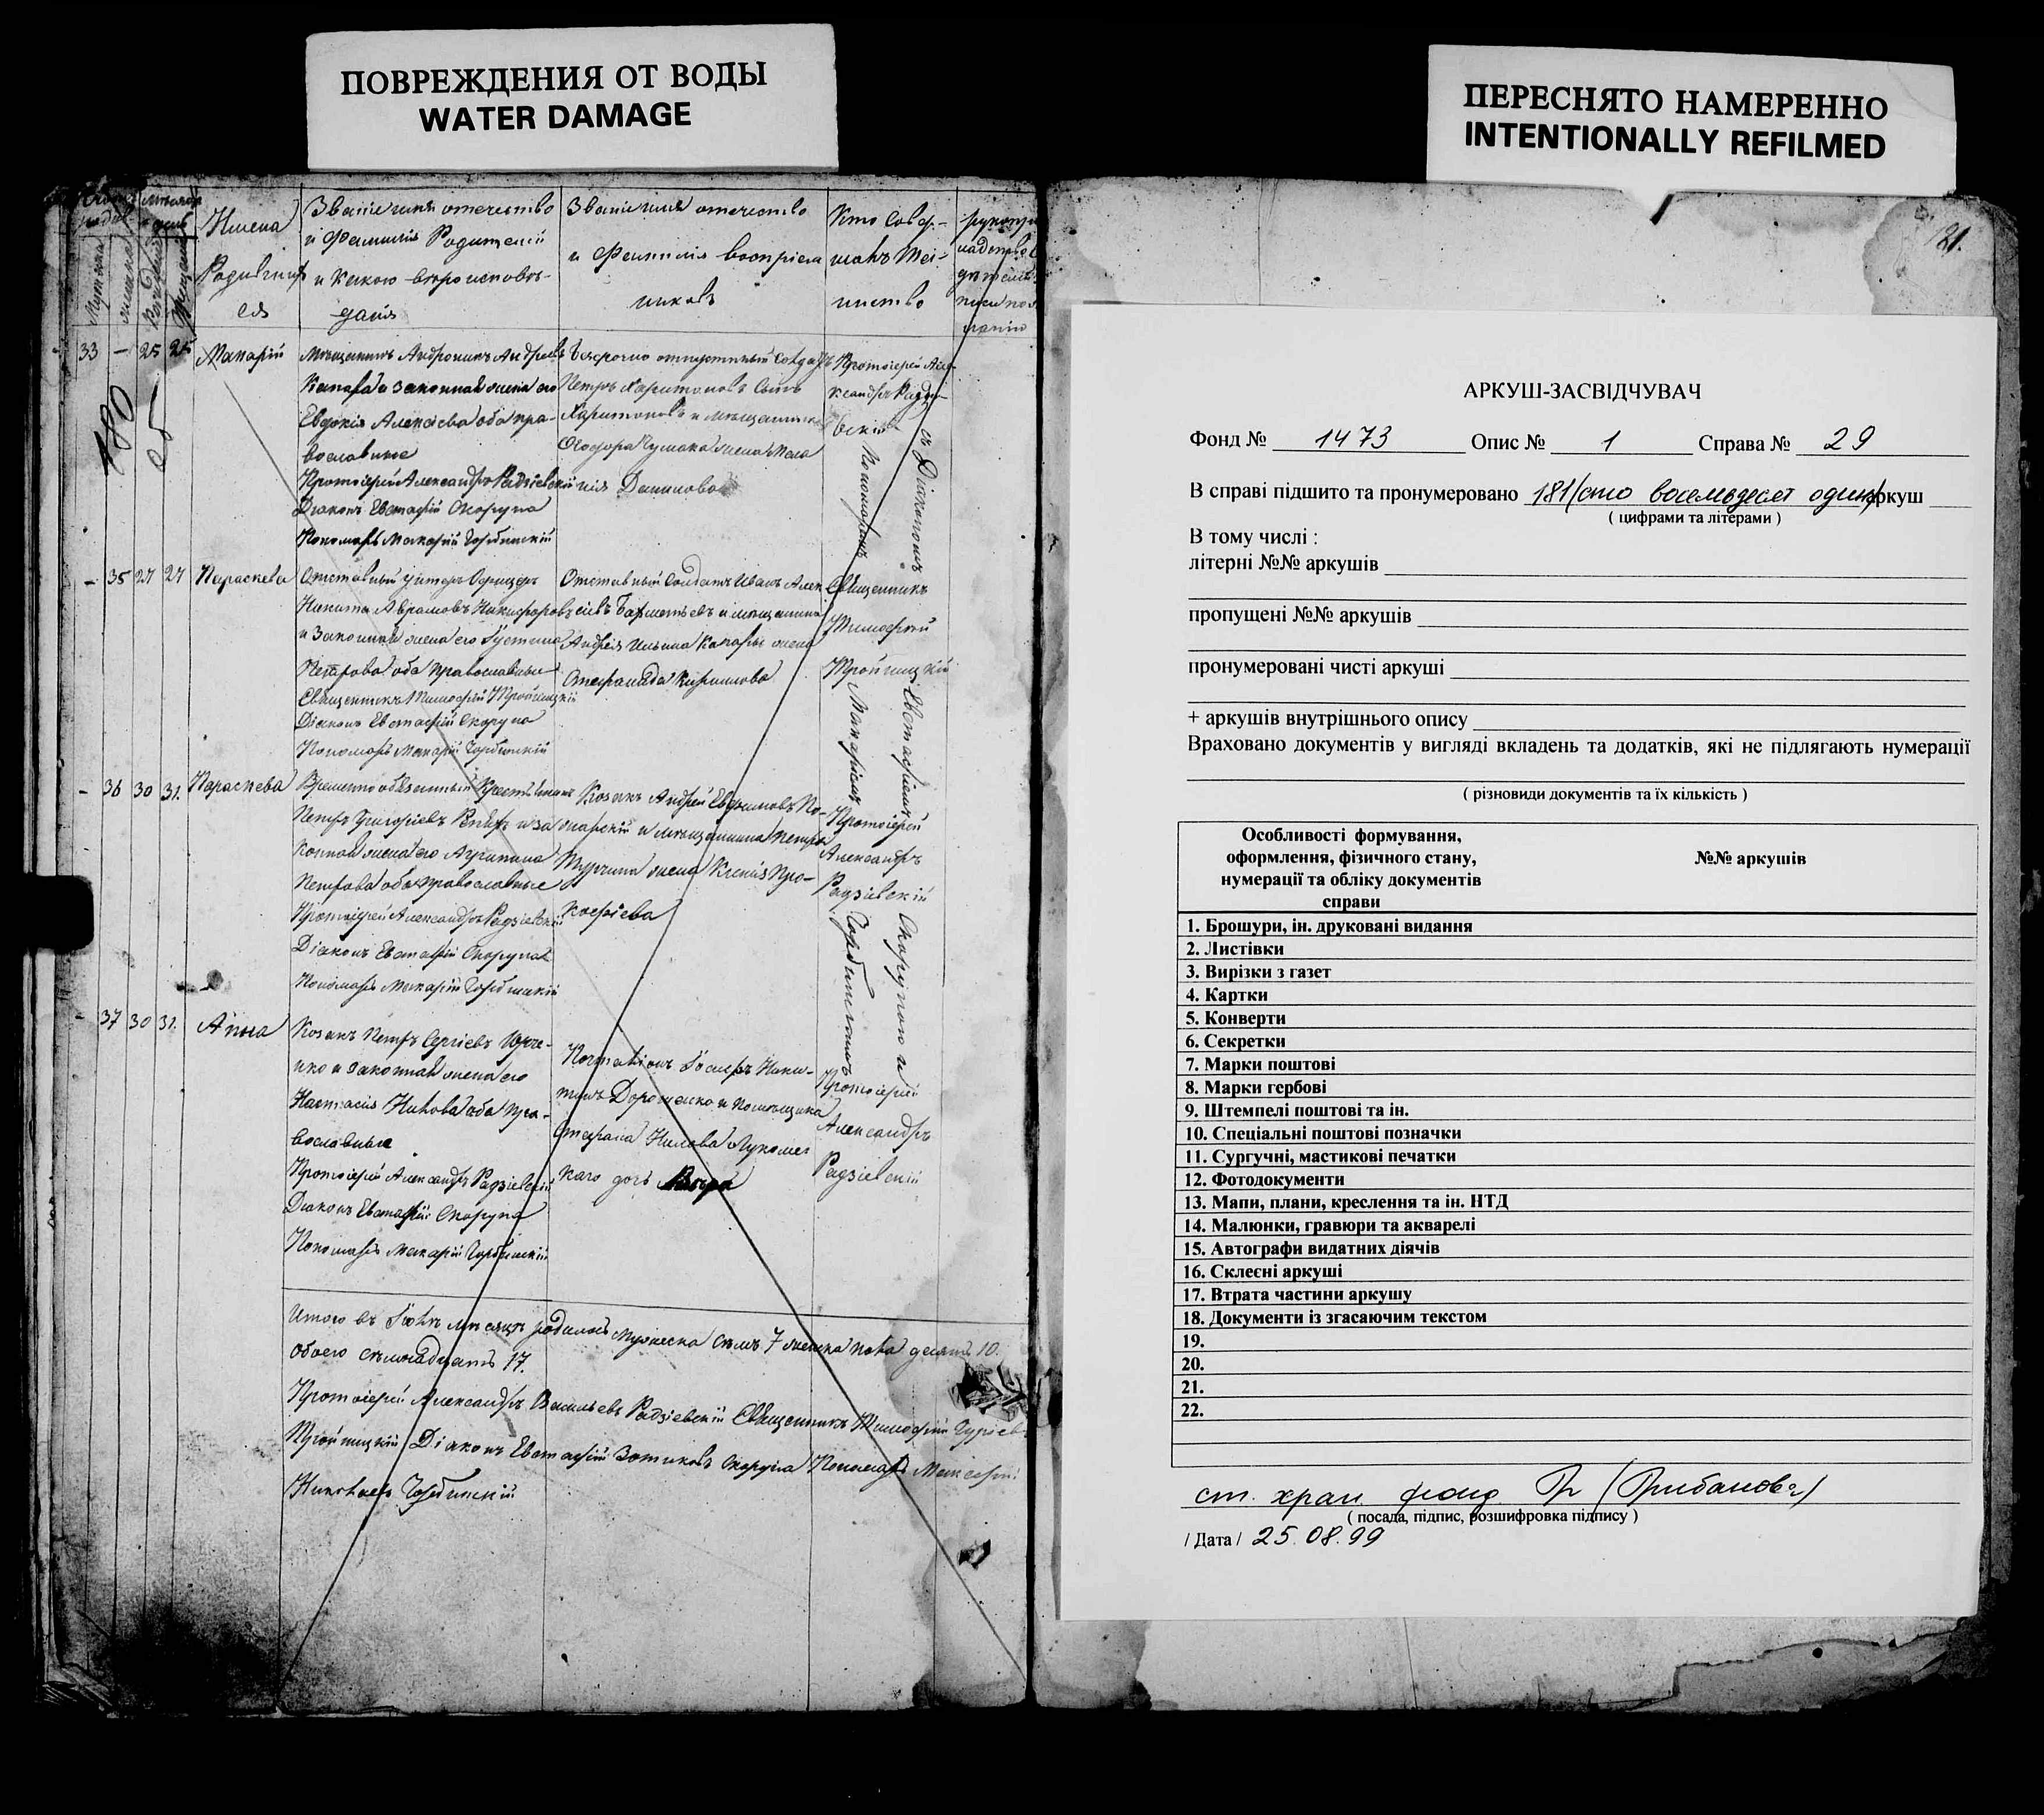 ПОВРЕЖДЕНИЯ ОТ ВОДЫ
WATER DAMAGE
ПЕРЕСНЯТО НАМЕРЕННО
INTENTIONALLY REFILMED
Имена
Родивших
ся
Званіе имя отчество
и Фамилія Родителей
и какого вѣроисповѣ-
данія
Званіе имя отчество
и Фамилія воспріем
никовъ
Кто совер-
шалъ Таи-
нство
180
об
33 - 25 25 Макарій
Мѣщанинъ Андроникъ Андреевъ
Капара и законная жена его
Евдокія Алексѣева оба пра-
вославные
Протоіерей Александръ Радзіевскій
Діаконъ Евстафій Скорупа
Пономарь Макарій Горбинскій
Безсрочно отпускный Солдатъ
Петръ Харитоновъ Сынъ
Харитоновъ и мѣщанина
Ѳеодора Чумака жена Мела
нія Данилова
Протоіерей Але-
ксандръ Радзі-
евскій
съ Діакономъ Евстафіемъ Скорупою и
Пономаремъ Макаріемъ Горбинскимъ
- 35 27 27 Параскева
Отставный унтеръ Офицеръ
Никита Аврамовъ Никифоровъ
и Законная жена его Іустина
Петрова оба православные
Священникъ Тимофей Тройницкій
Діаконъ Евстафій Скорупа
Пономарь Макарій Горбинскій
Отставный Солдатъ Иванъ Алек
сѣевъ Бахметьевъ и мѣщанина
Андрея Ильина Капары жена
Стефанида Кирилова
Священникъ
Тимофей
Тройницкій
- 36 30 31. Параскева
Временно обязанный Крестьянинъ
Петръ Григорьевъ Репехъ и за
конная жена его Агрипина
Петрова оба православные
Протоіерей Александръ Радзіевскій
Діаконъ Евстафій Скорупа
Пономарь Макарій Горбинскій
Козакъ Андрей Евфимовъ По-
жарскій и мѣщанина Петра
Турчина жена Ксенія Про-
кофіева
Протоіерей
Александръ
Радзіевскій
- 37 30 31. Анна
Козакъ Петръ Сергіевъ Юрче-
нко и законная жена его
Настасія Ивова оба пра-
вославные
Протоіерей Александръ Радзіевскій
Діаконъ Евстафій Скорупа
Пономарь Макарій Горбинскій
Почталіонъ Іосифъ Ники-
тинъ Дорошенко и помѣщика
Стефана Нилова Лукомс
каго дочь Вѣра
Протоіерей
Александръ
Радзіевскій
Итого въ Іюлѣ мѣсяцѣ родилось мужеска семь 7 женска пола десять 10.
обоего семнадцать 17.
Протоіерей Александръ Васильевъ Радзіевскій Священникъ Тимофей Гуріевъ
Тройницкій Діаконъ Евстафій Зотиковъ Скорупа Пономарь Макарій
Николаевъ Горбинскій
181.
АРКУШ-ЗАСВІДЧУВАЧ
Фонд № 1473 Опис № 1 Справа № 29
В справі підшито та пронумеровано 181 (сто восемьдесят один) аркуш
( цифрами та літерами )
В тому числі :
літерні №№ аркушів
пропущені №№ аркушів
пронумеровані чисті аркуші
+ аркушів внутрішнього опису
Враховано документів у вигляді вкладень та додатків, які не підлягають нумерації
( різновиди документів та їх кількість )
Особливості формування,
оформлення, фізичного стану,
нумерації та обліку документів
справи
№№ аркушів
1. Брошури, ін. друковані видання
2. Листівки
3. Вирізки з газет
4. Картки
5. Конверти
6. Секретки
7. Марки поштові
8. Марки гербові
9. Штемпелі поштові та ін.
10. Спеціальні поштові позначки
11. Сургучні, мастикові печатки
12. Фотодокументи
13. Мапи, плани, креслення та ін. НТД
14. Малюнки, гравюри та акварелі
15. Автографи видатних діячів
16. Склеєні аркуші
17. Втрата частини аркушу
18. Документи із згасаючим текстом
19.
20.
21.
22.
ст. хран. фонд. (Грибанова)
( посада, підпис, розшифровка підпису )
/ Дата / 25.08.99